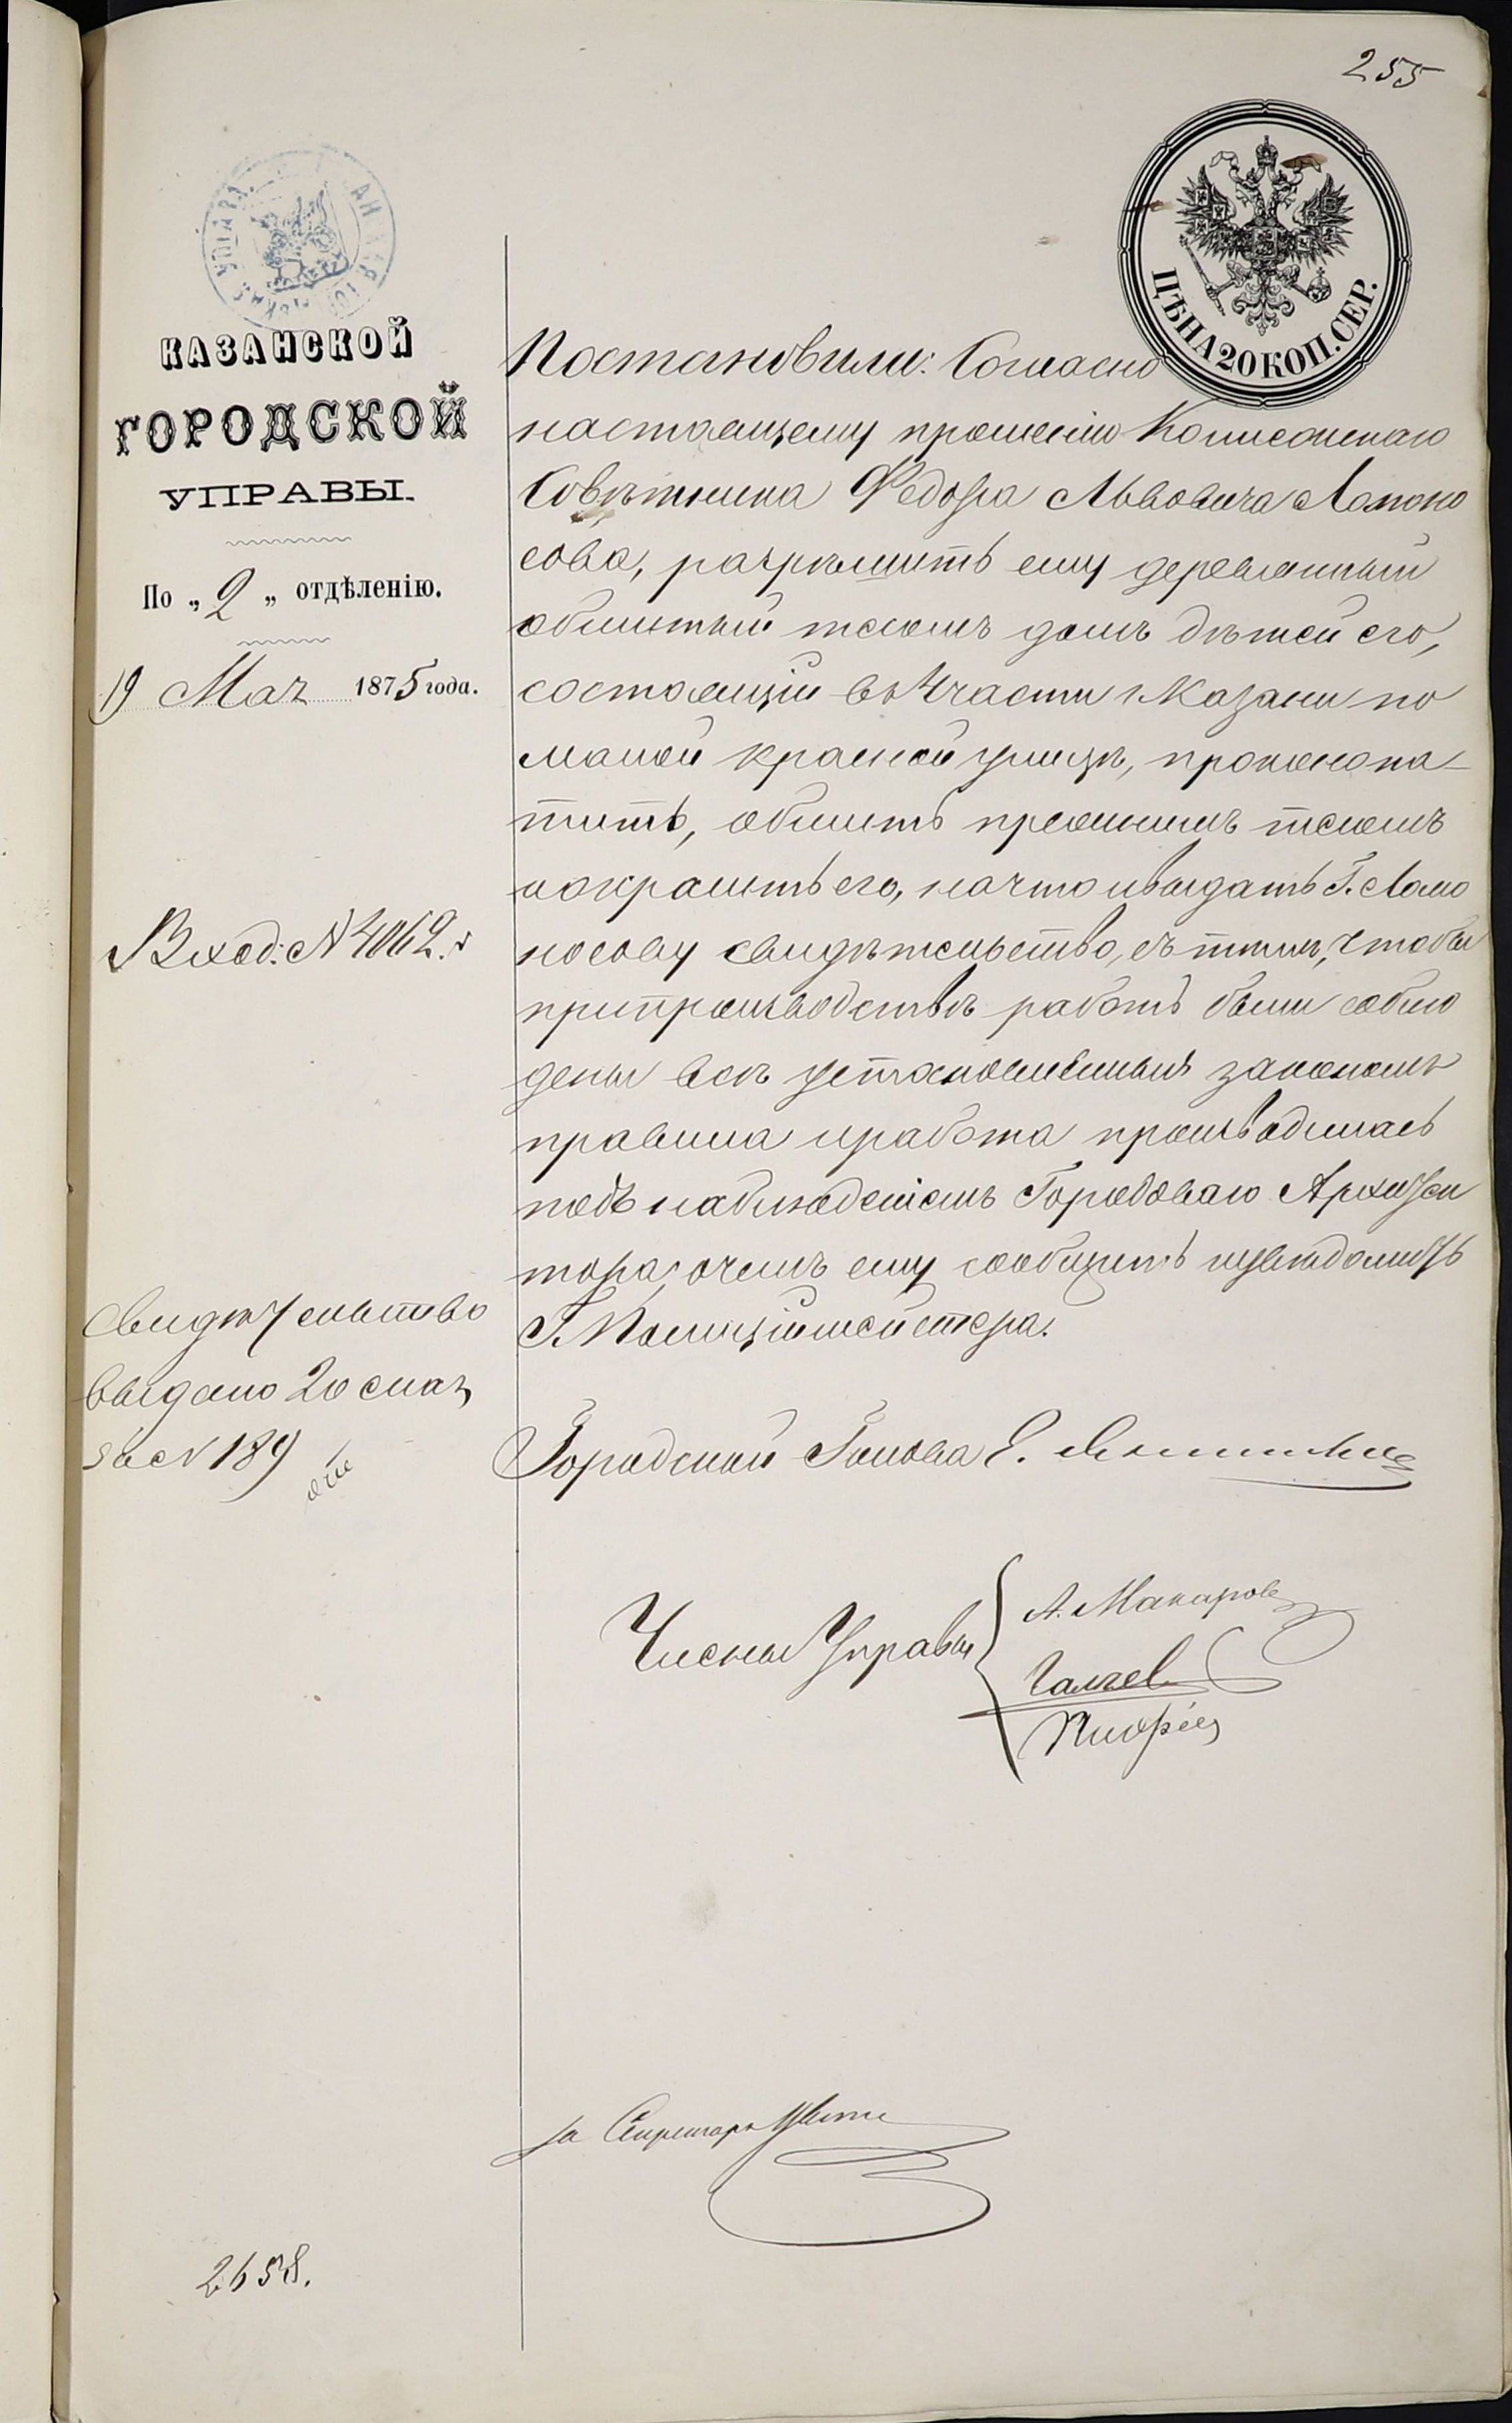 255
ЦѢНА 20 КОП. СЕР.
КАЗАНСКОЙ
ГОРОДСКОЙ
УПРАВЫ.
По „2„ отдѣленію.
19 Мая 1875 года.
Постановили: Согласно
настоящему прошенію Коллежскаго
Совѣтника Федора Львовича Ломоно
сова, разрѣшить ему деревянный
обшитый тесомъ домъ дѣтей его,
состоящій въ 4 части г. Казани по
малой красной улицѣ, проконопа-
тить, обшить прежнимъ тесомъ
и окрасить его, на что и выдать Г. Ломо
носову свидѣтельство, съ тѣмъ, чтобы
при производствѣ работъ были соблю
дены всѣ установленныя закономъ
правила и работа производилась
подъ наблюденіемъ Городоваго Архитек
тора, о чемъ ему сообщить и увѣдомить
Г. Полиціймейстера.
Вход: № 4062.
Свидѣтельство
выдано 20 мая
за № 189
Городской Голова Е.
Члены Управы
А. Макаровъ
Галѣев
за Секретаря
2658.